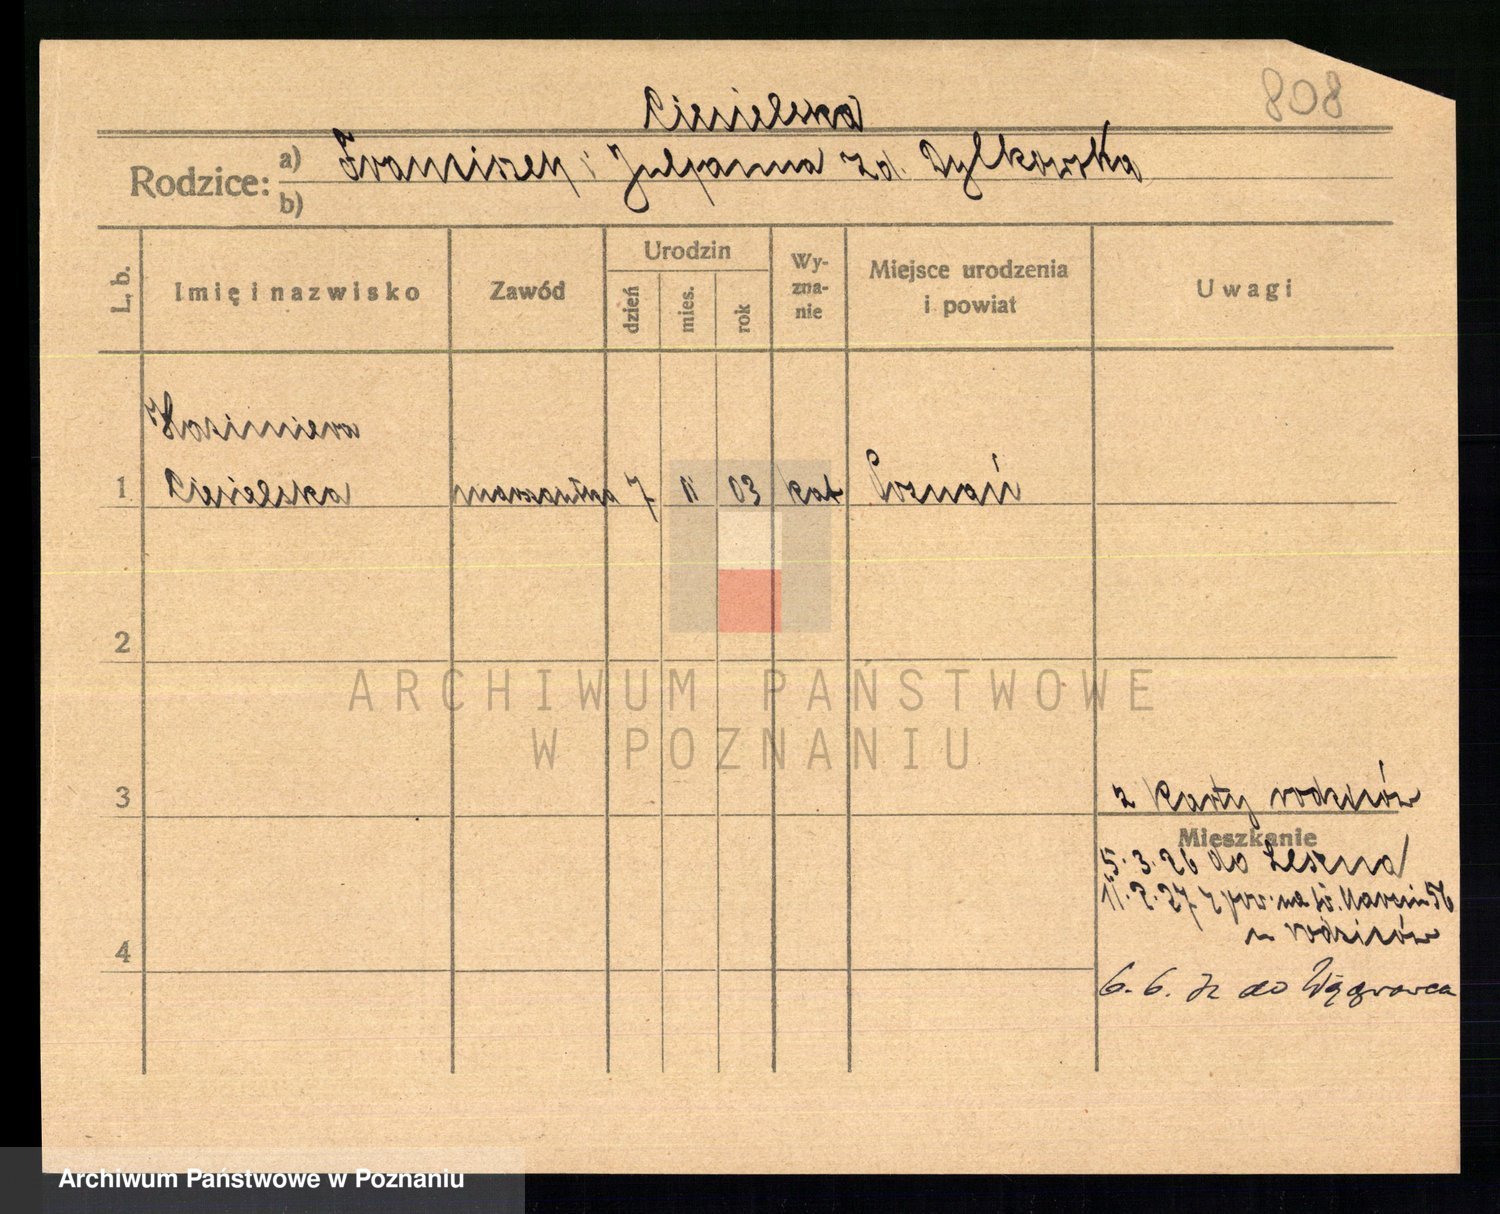 808
Ciesielska
Rodzice: a) Franciszek i Julpanna zd. Dylkowska
b)
L. b.
Imię i nazwisko
Zawód
Urodzin
dzień
mies.
rok
Wy-
zna-
nie
Miejsce urodzenia
i powiat
Uwagi
Kazimiera
1 Ciesielska 7 11 03 kat Poznań
2
3
z karty rodziców
Mieszkanie
5.3.26 do Leszna
11.2.27 z pow. na Św. Marcin 56
u rodziców
4
6.6. do Wągrowca
ARCHIWUM PAŃSTWOWE
W POZNANIU
Archiwum Państwowe w Poznaniu